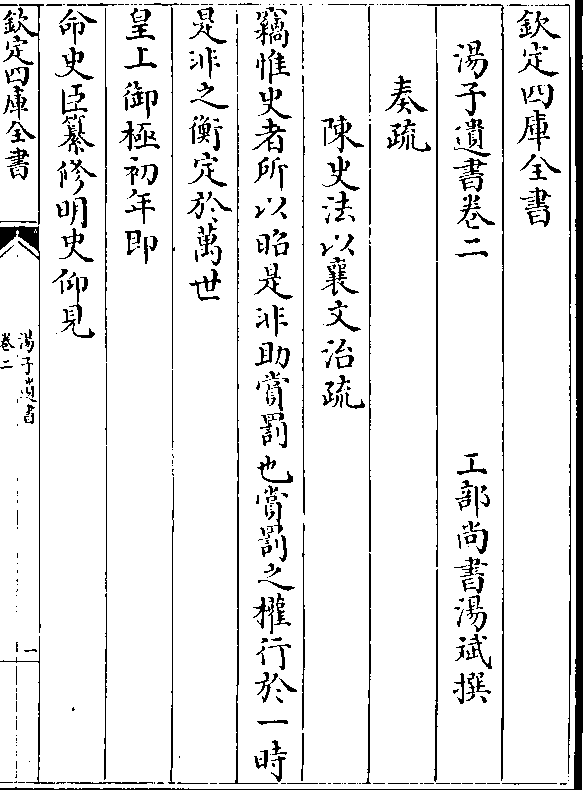 欽定四庫全書
湯子遺書卷二
工部尚書湯斌撰
奏疏
陳史法以襄文治疏
竊惟史者所以昭是非助賞罰也賞罰之權行於一時
是非之衡定於萬世
皇上御極初年即
命史臣纂修明史仰見
欽定四庫全書
湯子遺書
卷二
一